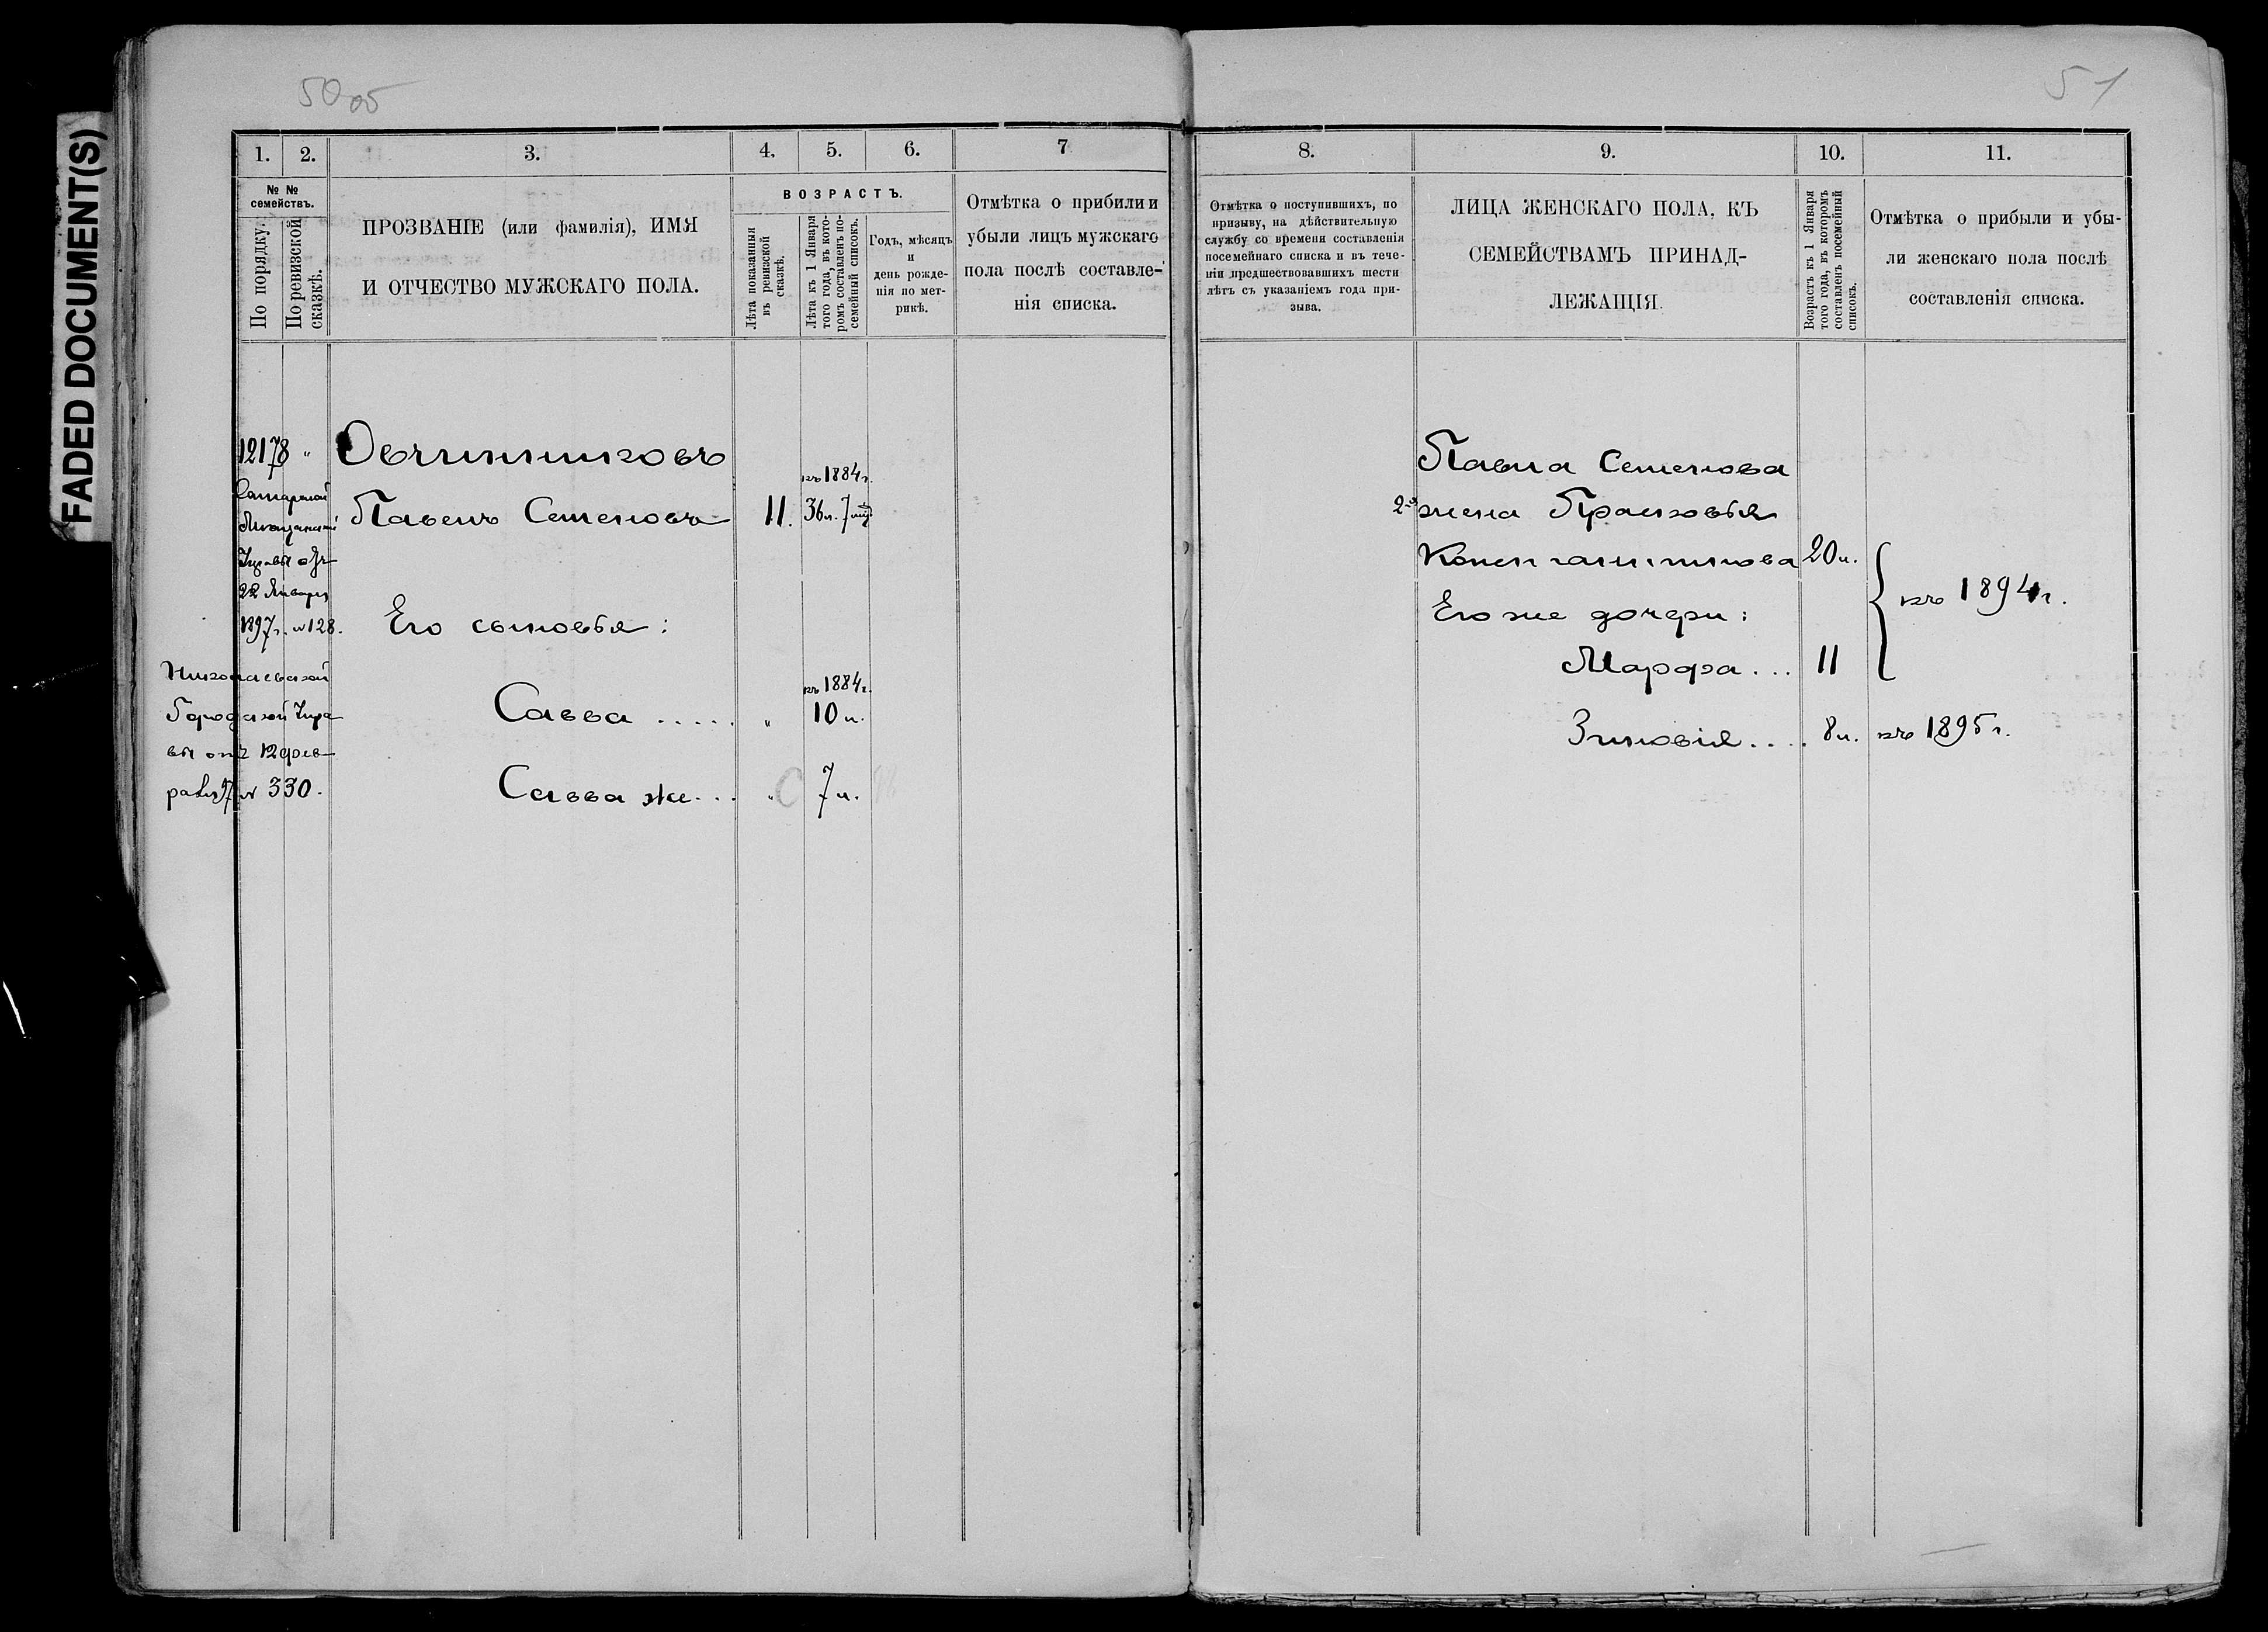 FADED DOCUMENT(S)
50 об
1.
2.
3.
4.
5.
6.
7
№ №
семействъ.
По порядку.
По ревизской
сказкѣ.
ПРОЗВАНІЕ (или фамилія), ИМЯ
И ОТЧЕСТВО МУЖСКАГО ПОЛА.
ВОЗРАСТЪ.
Лѣта показанныя
въ ревизской
сказкѣ.
Лѣта къ 1 Января
того года, въ кото-
ромъ составленъ по-
семейный списокъ.
Годъ, мѣсяцъ
и
день рожде-
нія по мет-
рикѣ.
Отмѣтка о прибыли и
убыли лицъ мужскаго
пола послѣ составле-
нія списка.
12178 "
Самарской
Мѣщанской
Управы отъ
22 Января
1897 г. № 128.
Николаевской
Городской Упра
вы отъ 12 фев-
раля 97 № 330.
Овчинниковъ
Павелъ Семеновъ
11.
къ 1884 г.
36 л. 7 мѣс
Его сыновья:
Савва .....
"
къ 1884 г.
10 л.
Савва же...
"
7 л.
51
8.
9.
10.
11.
Отмѣтка о поступившихъ, по
призыву, на дѣйствительную
службу со времени составленія
посемейнаго списка и въ тече-
ніи предшествовавшихъ шести
лѣтъ съ указаніемъ года при-
зыва.
ЛИЦА ЖЕНСКАГО ПОЛА, КЪ
СЕМЕЙСТВАМЪ ПРИНАД-
ЛЕЖАЩІЯ.
Возрастъ къ 1 Января
того года, въ которомъ
составленъ посемейный
списокъ.
Отмѣтка о прибыли и убы-
ли женскаго пола послѣ
составленія списка.
Павла Семенова
2я жена Прасковья
Константинова
20 л.
къ 1894 г.
Его же дочери:
Марфа...
11
Зиновія....
8 л.
къ 1895 г.